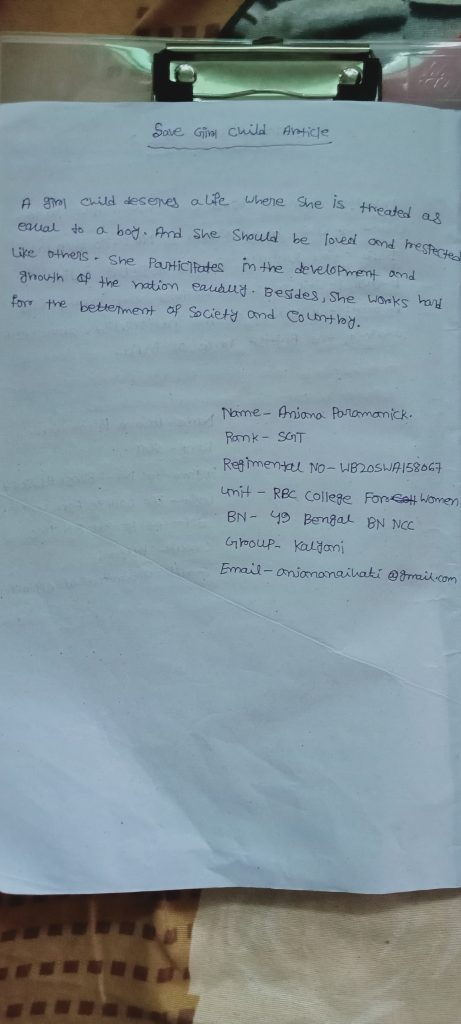 Save Girl Child Article
A girl child deserves a life where she is treated as
equal to a boy. And she should be loved and respected
like others. She Participates in the development and
growth of the nation equally. Besides, she works hard
for the betterment of society and country.
Name - Anjana Paramanick.
Rank - SGT
Regimental NO - WB20SWA158067
Unit - RBC College For Women
BN - 49 Bengal BN NCC
Group - Kalyani
Email - anjananaihati@gmail.com